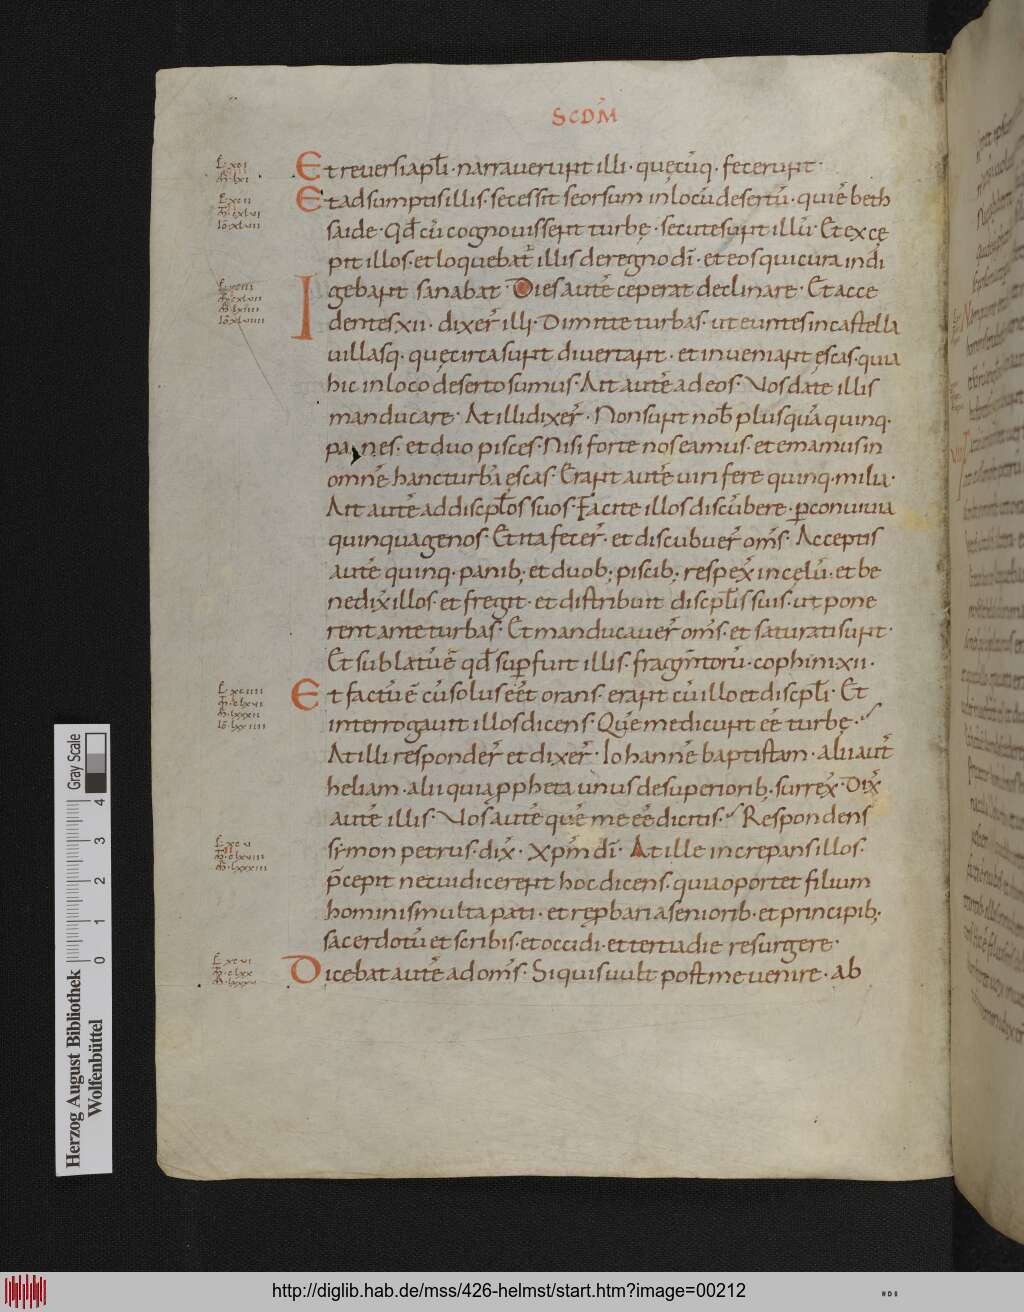 SCDM̄
Et reversi apłi · narraverunt illi · quęcūq · fecerunt ·
Et adsumptis illis · secessit seorsum in locū desertū · qui ē beth
saide · Qđ cū cognovissent turbę · secutesunt illū · Et excę
pit illos · et loquebat illis de regno dī · et eos qui cura indi
gebant sanabat · Dies autē ceperat declinare · Et acce
dentes xii · dixer̄ illi · Dimitte turbas · ut euntes in castella
villasq · quę circa sunt divertant · et inveniant escas · quia
hic in loco deserto sumus · Ait autē ad eos · Vos date illis
manducare · At illi dixer̄ · Non sunt nob plus quā quinq ·
panes · et duo pisces · Nisi forte nos eamus · et emamus in
omnē hanc turbā escas · Erant autē viri fere quinq · milia ·
Ait autē ad discplos suos · Facite illos discūbere · p convivia
quinquagenos · Et ita fecer̄ · et discubuer̄ om̄s · Acceptis
autē quinq · panib; et duob; piscib; respex̄ in cęlū · et be
nedix̄ illos · et fregit · et distribuit discplis suis · ut pone
rent ante turbas · Et manducauer̄ om̄s · et saturati sunt ·
Et sublatū ē qđ supfuit illis · fragm̄torū · cophini · xii ·
Et factū ē cū solus eēt orans · erant cū illo et discpli · Et
interrogavit illos dicens · Quē me dicunt eē turbę ·
At illi responder̄ et dixer̄ · Iohannē baptistam · alii aut̄
heliam · alii quia ppheta unus de superiorib; surrex̄ · Dix̄
autē illis · Vos autē quē me eē dicitis · Respondens
simon petrus · dix̄ · Xpm̄ dī · At ille increpans illos ·
p̄cepit ne cui dicerent hoc dicens · quia oportet filium
hominis multa pati · et repbari a seniorib · et principib;
sacerdotū et scribis · et occidi · et tertia die resurgere ·
Dicebat autē ad om̄s · Si quis vult post me venire · ab
Gray Scale
0 1 2 3 4
Herzog August Bibliothek
Wolfenbüttel
http://diglib.hab.de/mss/426-helmst/start.htm?image=00212